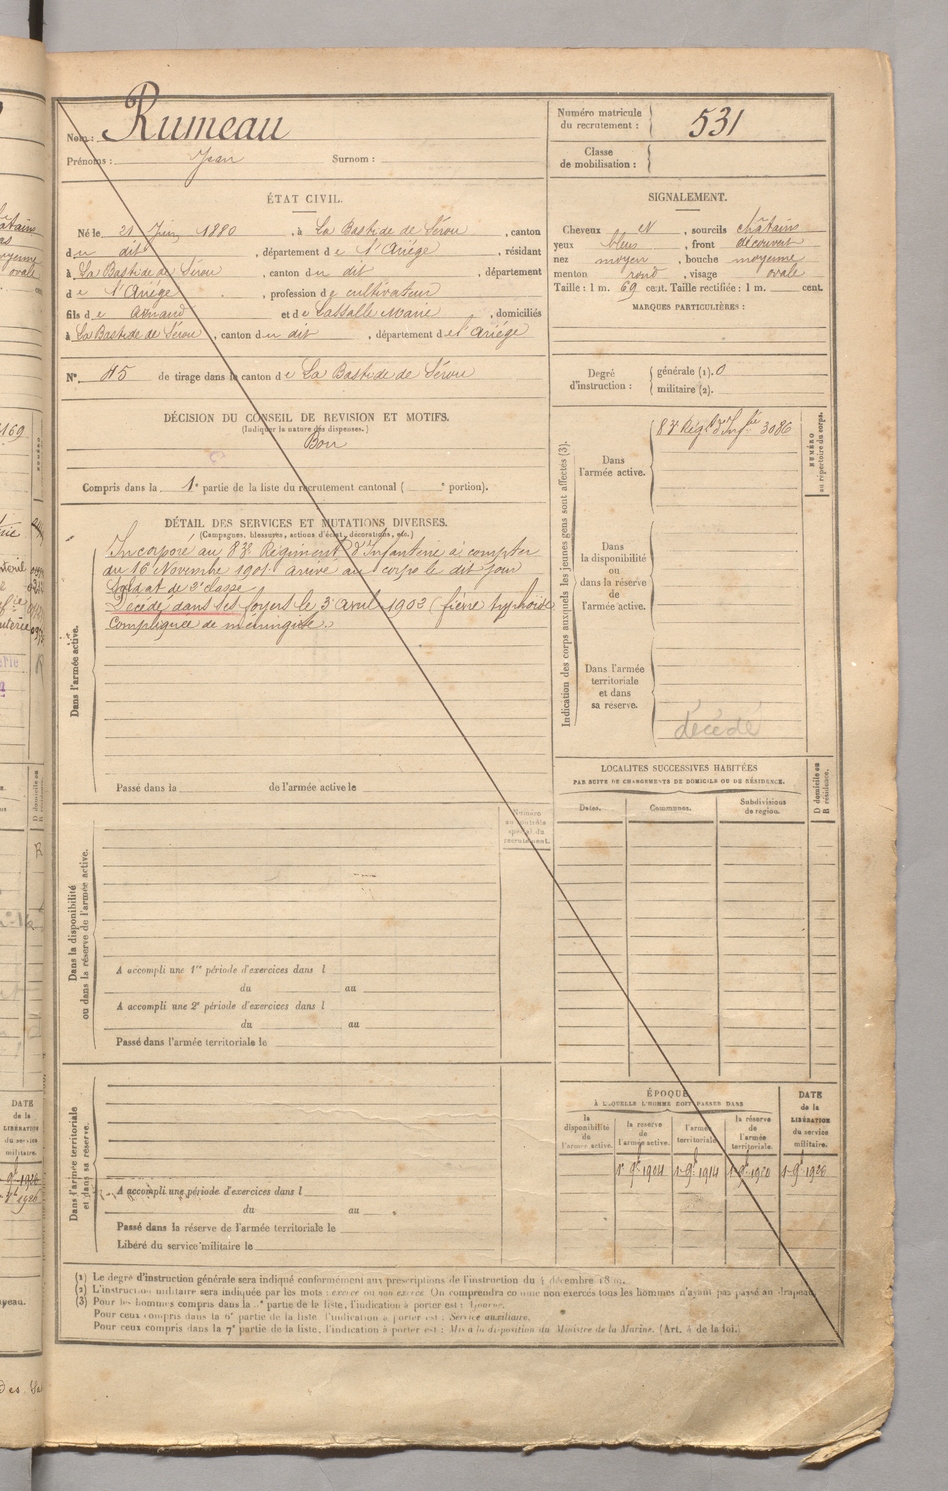 Nom : Rumeau
Prénoms : Jean Surnom :
Numéro matricule
du recrutement : 531
Classe
de mobilisation :
ÉTAT CIVIL.
Né le 21 Juin 1880, à La Bastide de Sérou, canton
du dit, département de l'Ariége, résidant
à La Bastide de Sérou, canton du dit, département
de l'Ariége, profession de cultivateur
fils de Arnaud et de Lassalle Marie, domiciliés
à La Bastide de Sérou, canton du dit, département de l'Ariége
N° 45 de tirage dans le canton de La Bastide de Sérou
SIGNALEMENT.
Cheveux N, sourcils châtains
yeux bleus, front découvert
nez moyen, bouche moyenne
menton rond, visage ovale
Taille : 1 m. 69 cent. Taille rectifiée : 1 m. cent.
MARQUES PARTICULIÈRES :
Degré
d'instruction :
générale (1). 0
militaire (2).
DÉCISION DU CONSEIL DE REVISION ET MOTIFS.
(Indiquer la nature des dispenses.)
Bon
Compris dans la 1e partie de la liste du recrutement cantonal ( e portion).
DÉTAIL DES SERVICES ET MUTATIONS DIVERSES.
(Campagnes, blessures, actions d'éclat, décorations, etc.)
Dans l'armée active.
Incorporé au 83e Régiment d'Infanterie à compter
du 16 Novembre 1901. arrivé au corps le dit jour
Soldat de 2e classe
Décédé dans ses foyers le 3 avril 1903 (fièvre typhoïde
compliquée de méningite.)
Passé dans la de l'armée active le
Indication des corps auxquels les jeunes gens sont affectés (3).
NUMÉRO
au répertoire du corps.
Dans
l'armée active.
83e Régt d'Infie 3086
Dans
la disponibilité
ou
dans la réserve
de
l'armée active.
Dans l'armée
territoriale
et dans
sa réserve.
décédé
LOCALITES SUCCESSIVES HABITÉES
PAR SUITE DE CHANGEMENTS DE DOMICILE OU DE RÉSIDENCE.
D domicile ou
R résidence.
Dates.
Communes.
Subdivisions
de région.
Dans la disponibilité
ou dans la réserve de l'armée active.
Numéro
au contrôle
spécial du
recrutement.
A accompli une 1re période d'exercices dans l
du au
A accompli une 2e période d'exercices dans l
du au
Passé dans l'armée territoriale le
Dans l'armée territoriale
et dans sa réserve.
A accompli une période d'exercices dans l
du au
Passé dans la réserve de l'armée territoriale le
Libéré du service militaire le
ÉPOQUE
À LAQUELLE L'HOMME DOIT PASSER DANS
la
disponibilité
de
l'armée active.
la réserve
de
l'armée active.
l'armée
territoriale
la réserve
de
l'armée
territoriale.
DATE
de la
LIBÉRATION
du service
militaire.
1r 9bre 1904 1r 9bre 1914 1r 9bre 1920 1r 9bre 1926
(1) Le degré d'instruction générale sera indiqué conformément aux prescriptions de l'instruction du 4 décembre 18
(2) L'instruction militaire sera indiquée par les mots : exercé ou non exercé. On comprendra comme non exercés tous les hommes n'ayant pas passé au drapeau.
(3) Pour les hommes compris dans la partie de la liste, l'indication à porter est : Ajourné.
Pour ceux compris dans la 6e partie de la liste, l'indication à porter est : Service auxiliaire.
Pour ceux compris dans la 7e partie de la liste, l'indication à porter est : Mis à la disposition du Ministre de la Marine. (Art. 4 de la loi.)